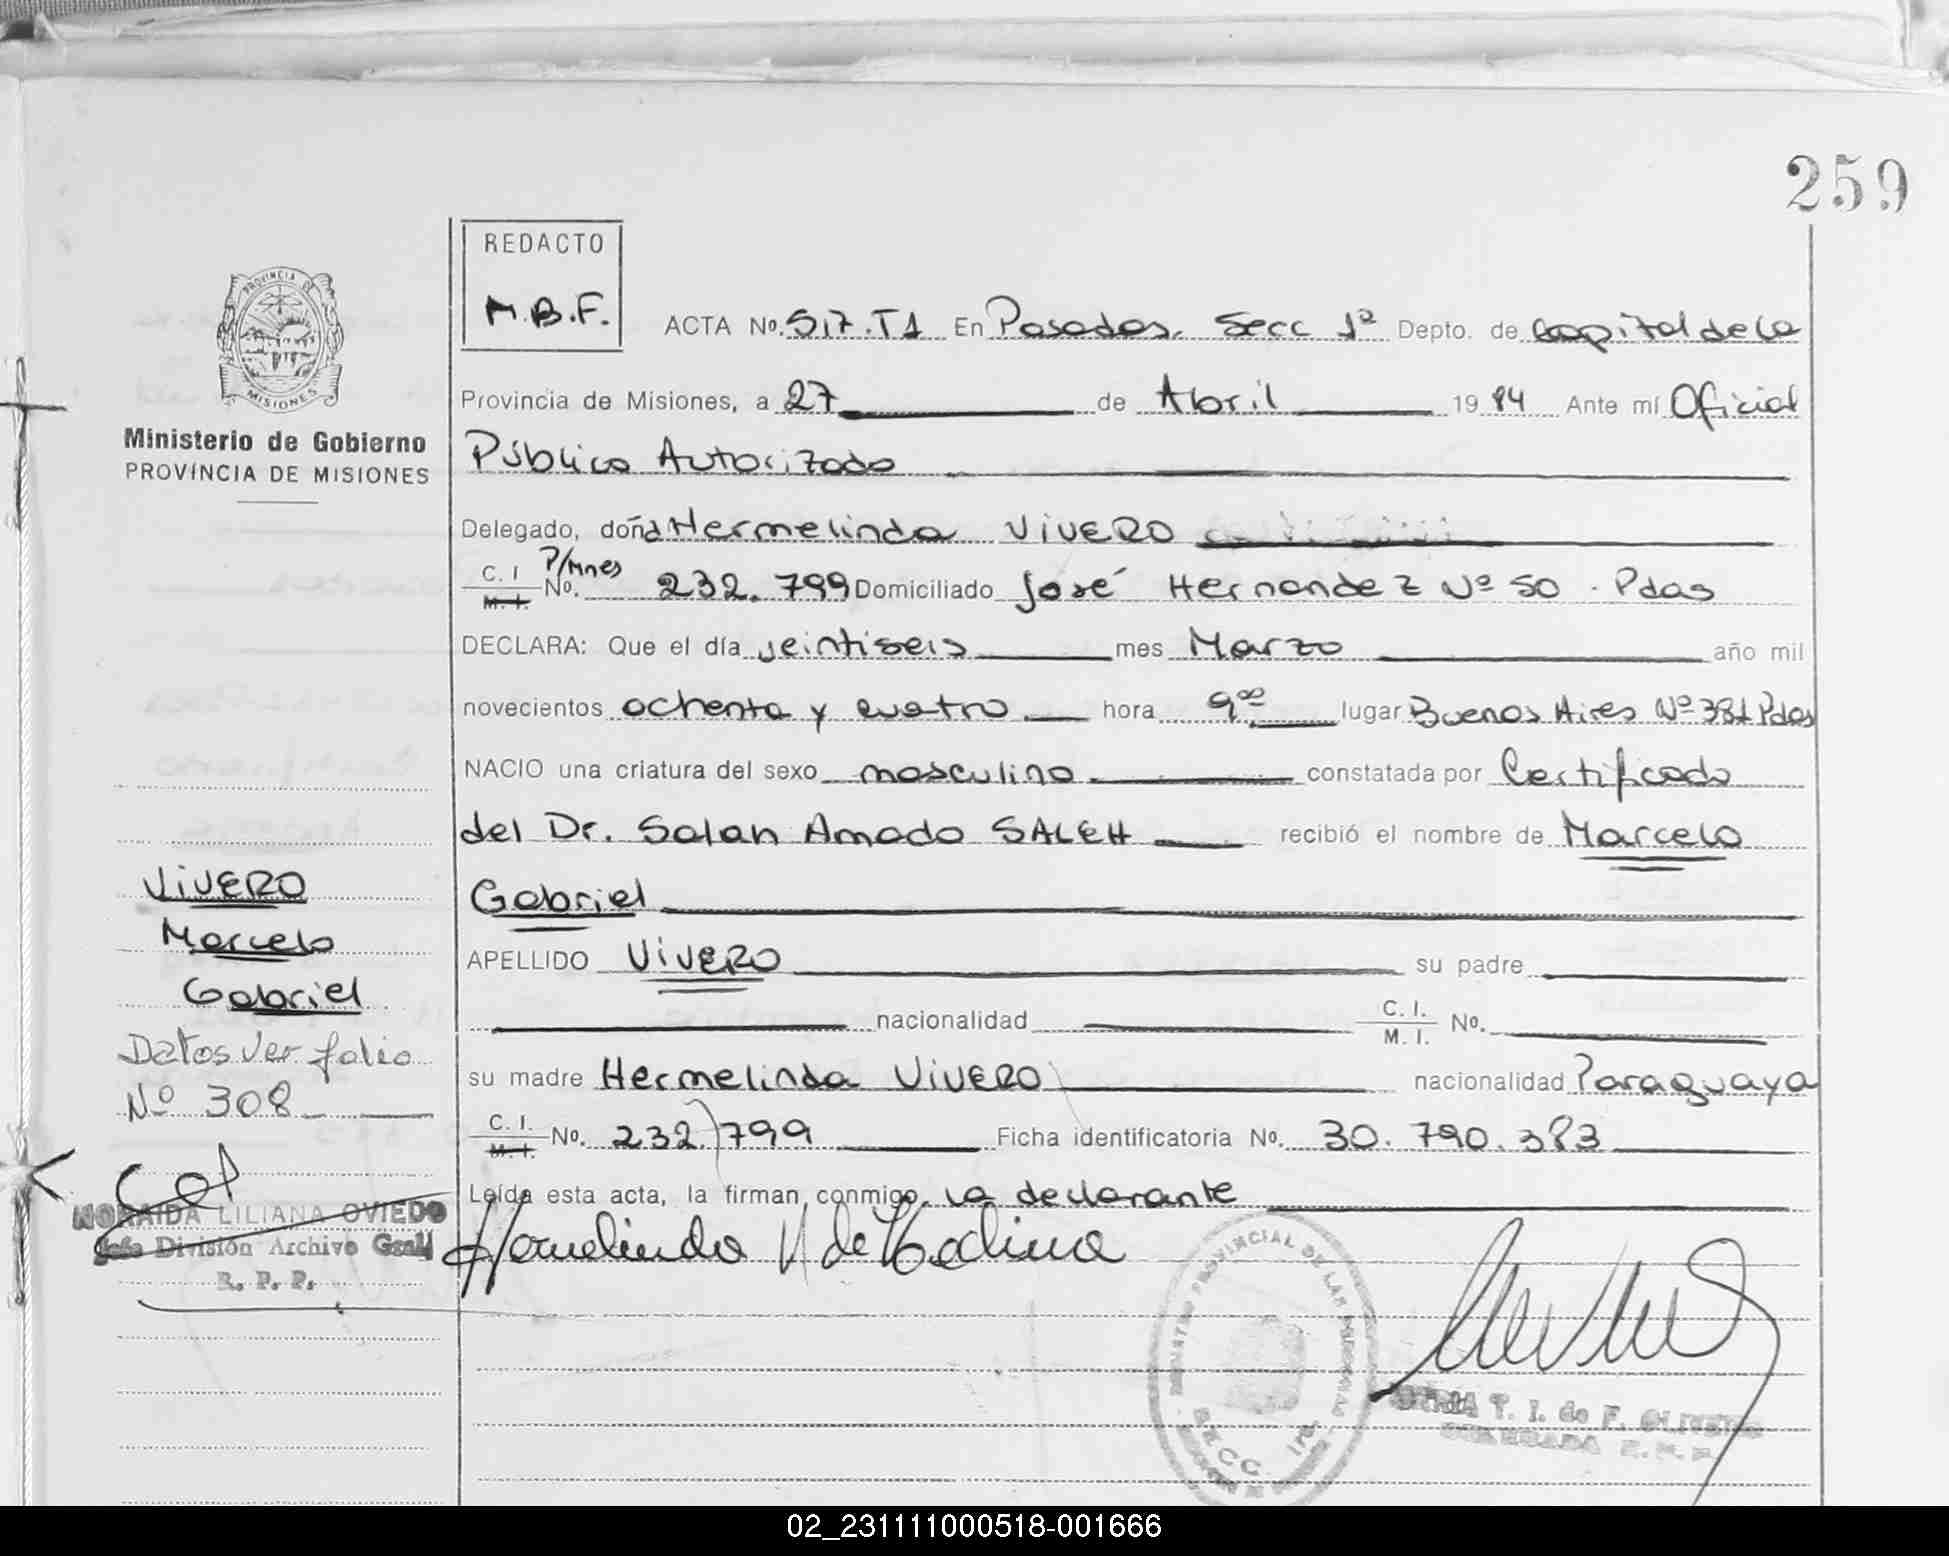 259
REDACTO
M.B.F.
ACTA No. 517.T1 En Posadas. Secc 1ª Depto. de Capital de la
Provincia de Misiones, a 27 de Abril 1984 Ante mí Oficial
Público Autorizado
Delegado, doña Hermelinda VIVERO
C. I. M. I. P/Mnes No. 232.799 Domiciliado José Hernandez Nº 50. Pdas
DECLARA: Que el día veintiseis mes Marzo año mil
novecientos ochenta y cuatro hora 9ºº lugar Buenos Aires Nº 381 Pdas
NACIO una criatura del sexo masculino constatada por Certificado
del Dr. Salah Amado SALEH recibió el nombre de Marcelo
Gabriel
APELLIDO VIVERO su padre
nacionalidad C. I. M. I. No.
su madre Hermelinda VIVERO nacionalidad Paraguaya
C. I. M. I. No. 232.799 Ficha identificatoria No. 30.790.383
Leída esta acta, la firman conmigo, la declarante
Hermelinda V de Medina
PROVINCIA DE
MISIONES
Ministerio de Gobierno
PROVINCIA DE MISIONES
VIVERO
Marcelo
Gabriel
Datos ver folio
Nº 308
NORAIDA LILIANA OVIEDO
Jefe División Archivo Gral
R. P. P.
REGISTRO PROVINCIAL DE LAS PERSONAS
T. I. de F.
02_231111000518-001666